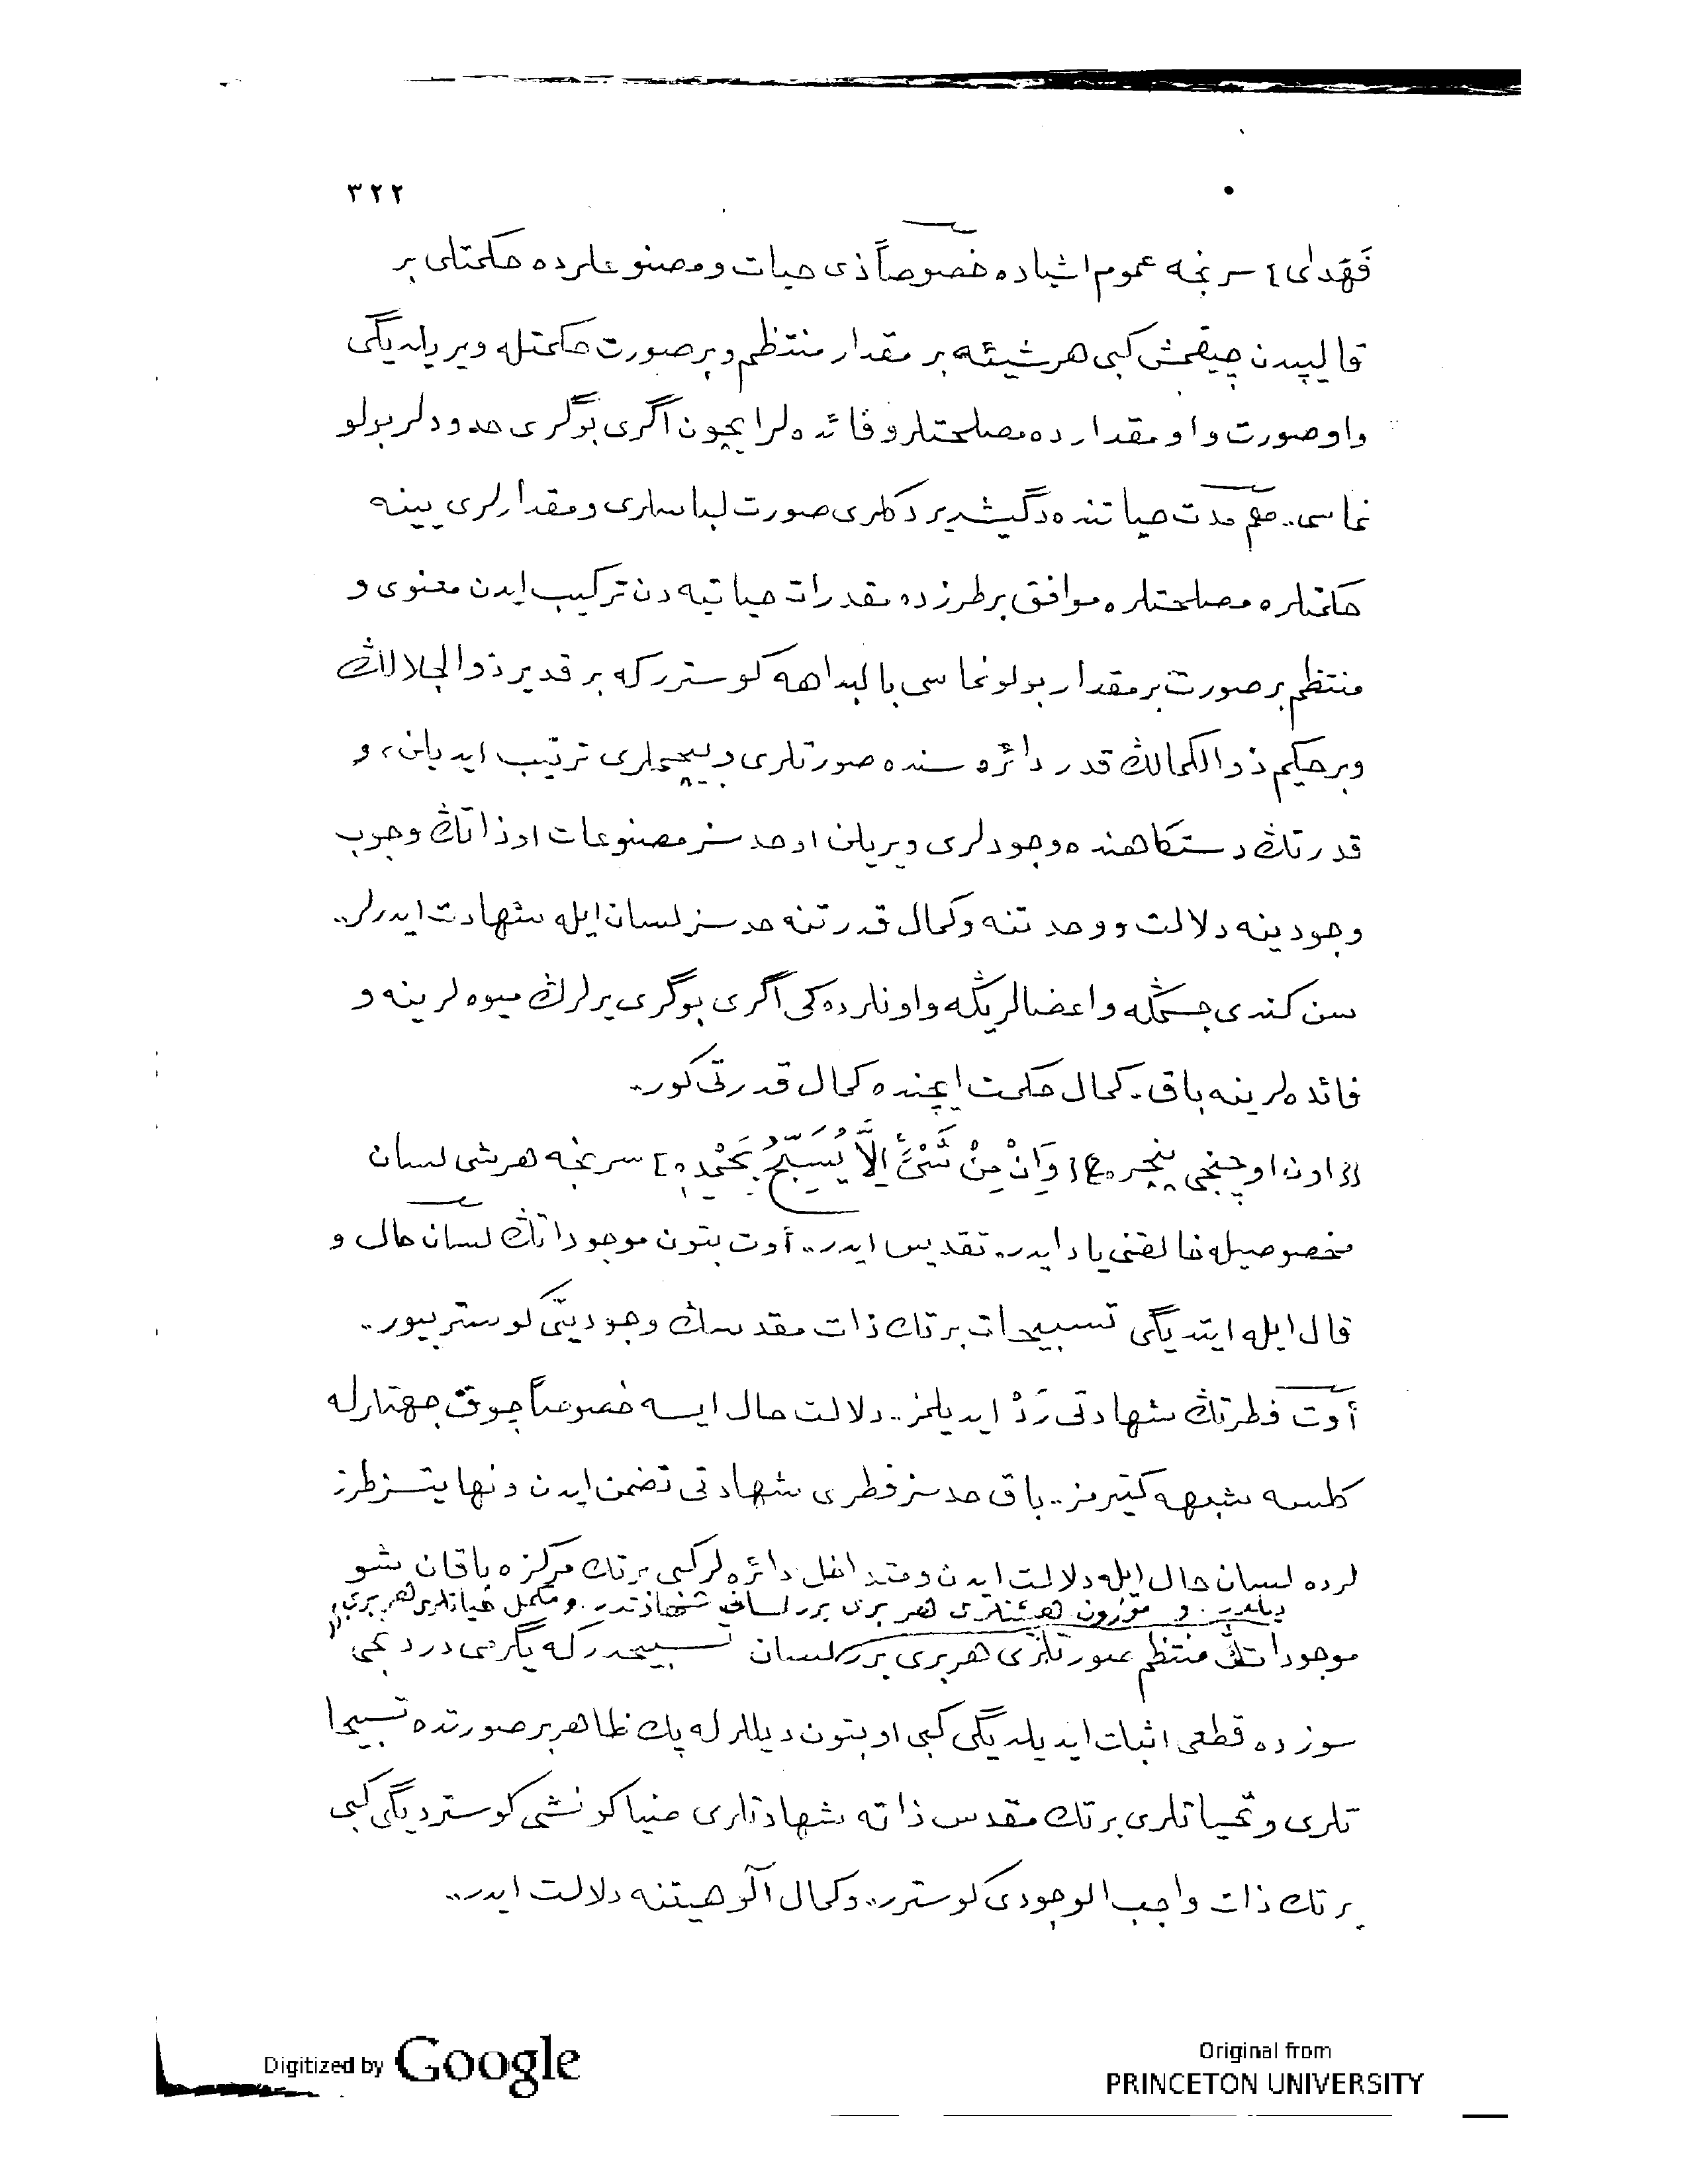 ٣٢٢
فَهَدٰى] سرنجه عموم اشياده خصوصاً ذى حيات ومصنوعلرده حكمتلى بر
قاليپدن چيقمش كبى هر شيئه بر مقدار منتظم وبر صورت حكمتله ويريلديگى
واو صورت واو مقدارده مصلحتلر وفائده لر ايچون اگرى بوگرى حدودلر بولو
نماسى.. هم مدت حياتنده دگيشديردكلرى صورت لباسلرى ومقدارلرى يينه
حكمتلره مصلحتلره موافق بر طرزده مقدرات حياتيه دن تركيب ايدن معنوى و
منتظم بر صورت بر مقدار بولونماسى بالبداهه كوسترركه بر قدير ذوالجلالڭ
وبر حكيم ذوالكمالڭ قدر دائره سنده صورتلرى وبيچملرى ترتيب ايديلن، و
قدرتڭ دستكاهنده وجودلرى ويريلن او حدسز مصنوعات او ذاتڭ وجوب
وجودينه دلالت ووحدتنه وكمال قدرتنه حدسز لسان ايله شهادت ايدرلر..
سن كندى جسمڭه واعضالريڭه واونلرده كى اگرى بوگرى يرلرڭ ميوه لرينه و
فائده لرينه باق. كمال حكمت ايچنده كمال قدرتى كور..
((اون اوچنجى پنجره)) [وَاِنْ مِنْ شَيْئٍ اِلَّا يُسَبِّحُ بِحَمْدِهِ] سرنجه هر شى لسان
مخصوصيله خالقنى ياد ايدر.. تقديس ايدر.. أوت بتون موجوداتڭ لسان حال و
قال ايله ايتديگى تسبيحات بر تك ذات مقدسڭ وجودينى كوستريور..
أوت فطرتڭ شهادتى رَدْ ايديلمز.. دلالت حال ايسه خصوصاً چوق جهتلرله
كلسه شبهه كتيرمز.. باق حدسز فطرى شهادتى تضمن ايدن ونهايتسز طرز
لرده لسان حال ايله دلالت ايدن ومتداخل دائره لر كبى بر تك مركزه باقان شو
ديلدر. و موزون هيئتلرى هر برى برر لسان شهادتدر. و مكمل حياتلرى هر برى
موجوداتڭ منتظم صورتلرى هر برى برر لسان تسبيحدر كه يگرمى دردنجى
سوزده قطعى اثبات ايديلديگى كبى او بتون ديللرله پك ظاهر بر صورتده تسبيحا
تلرى وتحياتلرى بر تك مقدس ذاته شهادتلرى ضيا كونشى كوسترديگى كبى
بر تك ذات واجب الوجودى كوسترر.. وكمال ألوهيتنه دلالت ايدر..
Digitized by Google
Original from
PRINCETON UNIVERSITY